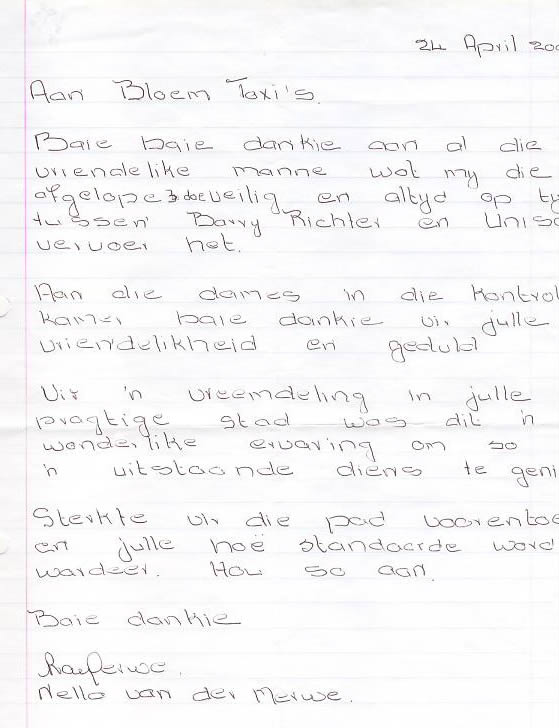 24 April 200
Aan Bloem Taxi's.
Baie baie dankie aan al die
vriendelike manne wat my die
afgelope 3 dae veilig en altyd op ty
tussen Barry Richter en Unisa
vervoer het.
Aan die dames in die kontrol
kamer baie dankie vir julle
vriendelikheid en geduld
Vir 'n vreemdeling in julle
pragtige stad was dit 'n
wonderlike ervaring om so
'n uitstaande diens te geni
Sterkte vir die pad voorento
en julle hoë standaarde word
wardeer. Hou so aan.
Baie dankie
Nella van der Merwe.